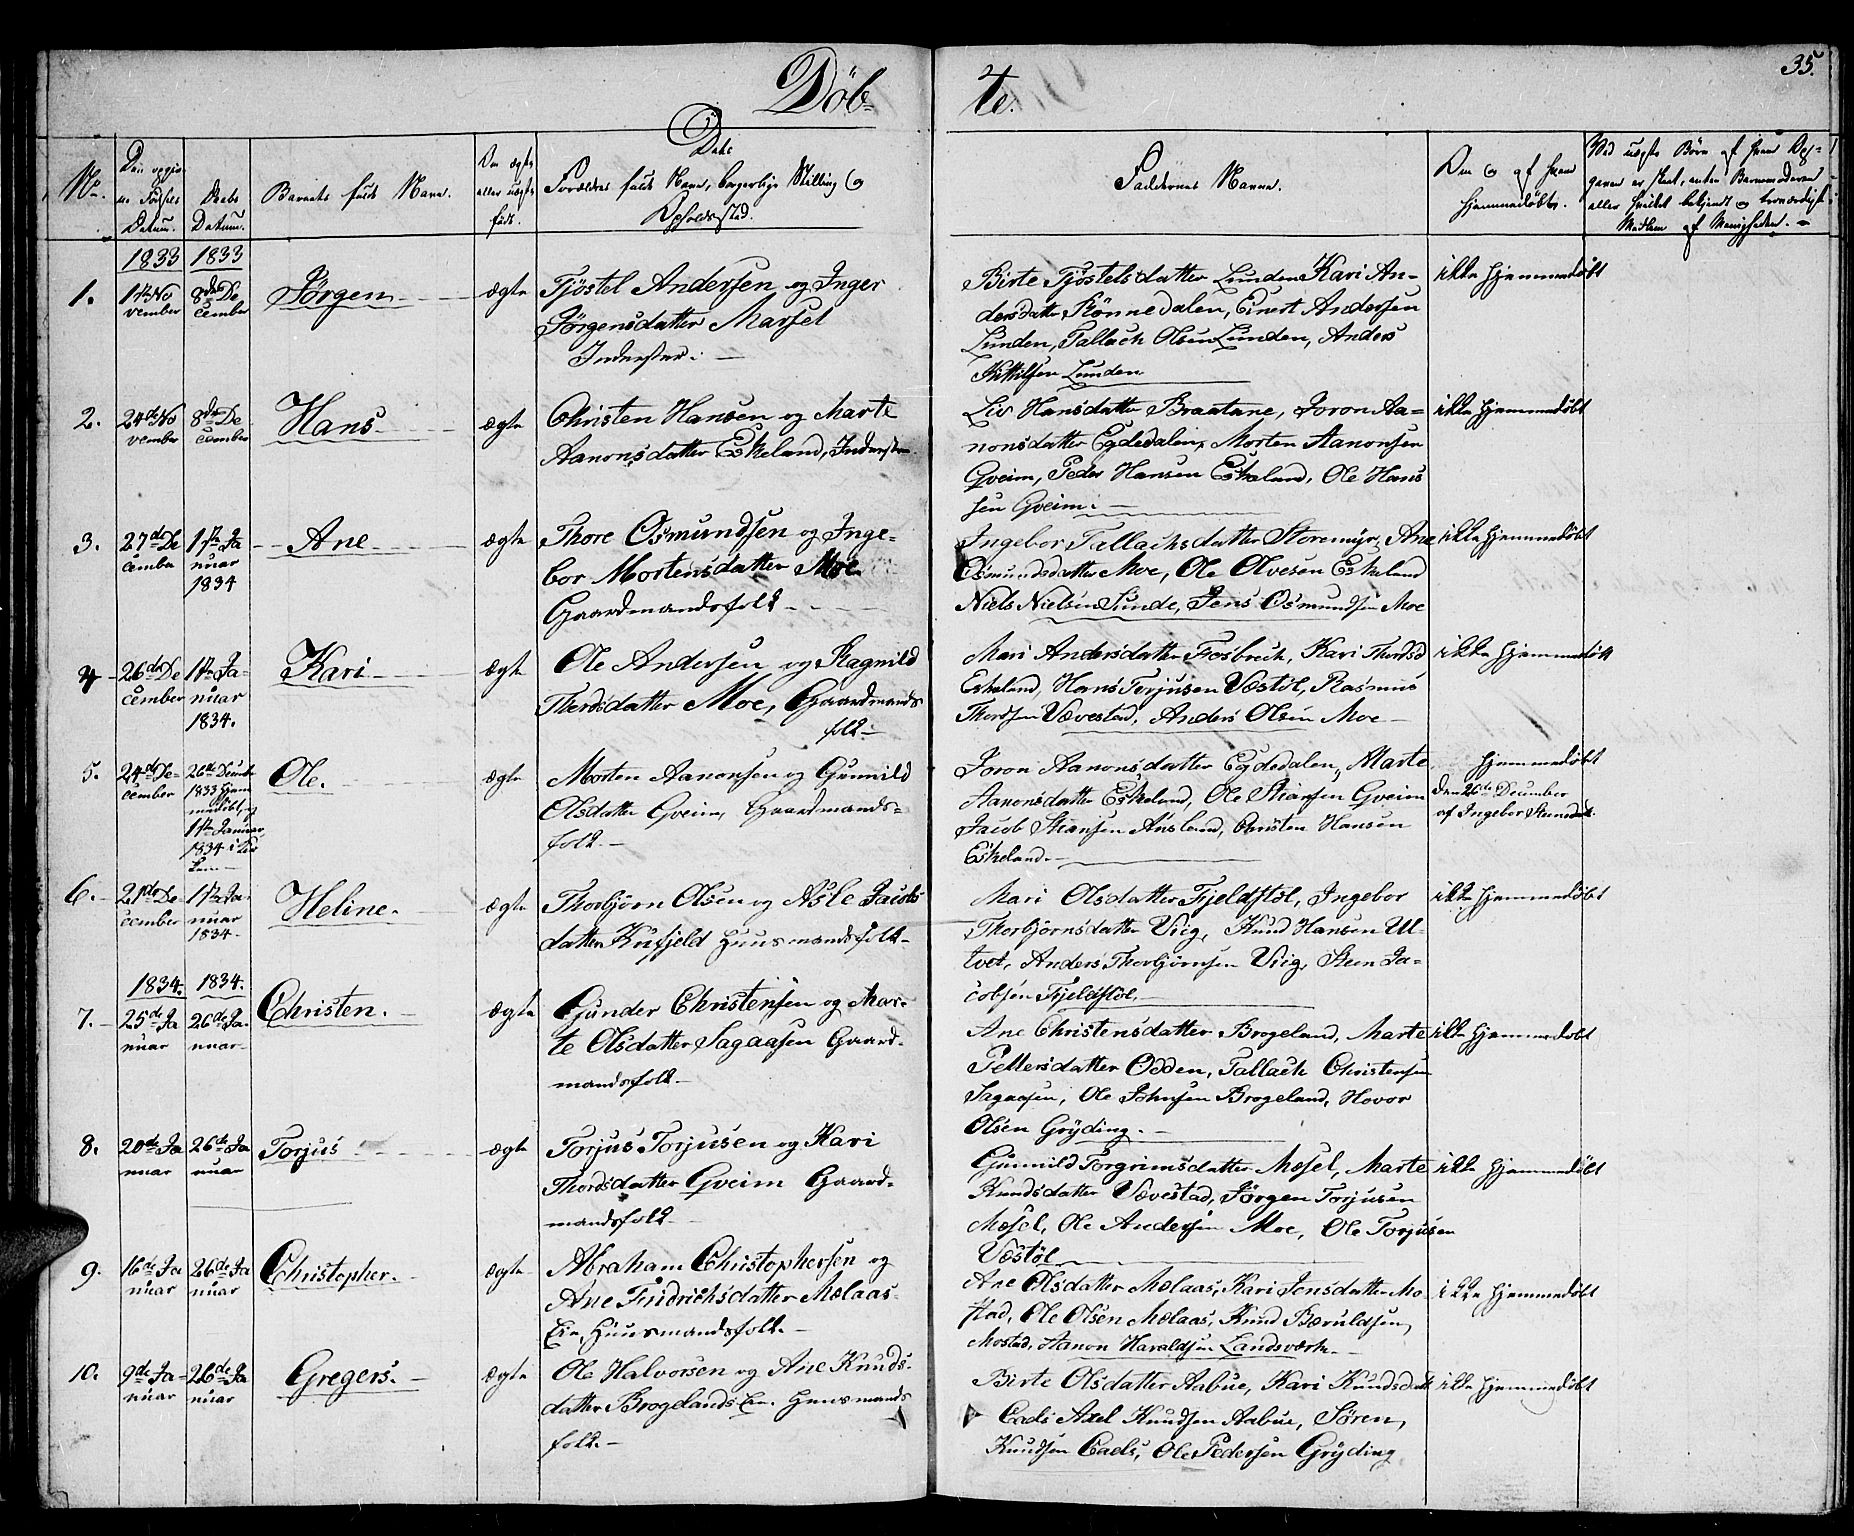 35.
Døb-
te.
No.
Den opgivne Fødsels Datum.
Daabs Datum.
Barnets fulde Navn.
Om ægte eller uægte født.
Dets Forældres fulde Navn, borgerlige Stilling og Opholdssted.
Faddernes Navne.
Om og af hvem hjemmedøbt.
Ved uægte Børn af hvem
1833 1833
1. 1ste No
vember
8de De
cember
Jörgen
ægte
Tjöstel Andersen og Inger
Jörgensdatter Marsel
Inderster.
Birte Tjöstelsdatter Lunden Kari An-
dersdatter Rönnedalen, Einert Andersen
Lunden, Tallach Olsen Lunden, Anders
Kittilsen Lunden
ikke hjemmedöbt
2. 24de No
vember
8de De
cember
Hans
ægte
Christen Hansen og Marte
Aanonsdatter Eskeland, Inderster.
Liv Hansdatter Braatane, Joron Aa-
nonsdatter Egdedalen, Morten Aanonsen
Gveim, Peder Hansen Eskeland, Ole Hans
sen Gveim.
ikke hjemmedöbt
3. 27de De
cember
1ste Ja
nuar
1834
Ane
ægte
Thore Osmundsen og Inge-
bor Mortensdatter Moe
Gaardmandsfolk
Ingebor Tallachsdatter Storemyr, Ane
Osmundsdatter Moe, Ole Olvesen Eskeland
Niels Nielsen Sunde, Jens Osmundsen Moe
ikke hjemmedöbt
4 26de De
cember
1ste Ja-
nuar
1834.
Kari
ægte
Ole Andersen og Ragnild
Thordsdatter Moe, Gaardmands
folk
Mari Andersdatter Fosbrech, Kari Thordsd
Eskeland, Hans Torjusen Væstöl, Rasmus
Thordsen Vævestad, Anders Olsen Moe
ikke hjemmedöbt
5. 24de De-
cember
26de Decmb
1833 hjem
medöbt, og
1ste Januar
1834 i Kir
ken
Ole.
ægte
Morten Aanonsen og Gunnild
Olsdatter Gveim, Gaardmands-
folk.
Joron Aanonsdatter Egdedalen, Marte
Aanonsdatter Eskeland, Ole Stiansen Gveim
Jacob Stiansen Ausland, Christen Hansen
Eskeland.
hjemmedöbt
den 26de December
af Ingebor Steensdatt.
6. 21de De-
cember
1ste Ja
nuar
1834
Heline.
ægte
Thorbjörn Olsen og Asle Jacobs
datter Knifjeld Huusmandsfolk
Mari Olsdatter Fjeldstöl, Ingebor
Thorbjörnsdatter Viig, Knud Hansen Ul-
tvet, Anders Thorbjörnsen Viig, Steen Ja-
cobsen Fjeldstöl.
ikke hjemmedöbt
1834. 1834.
7. 25de Ja
nuar
26de Ja-
nuar
Christen.
ægte
Gunder Christensen og Mar-
te Olsdatter Sagaasen Gaard-
mandsfolk
Ane Christensdatter Brogeland, Marte
Pettersdatter Odden, Tallach Christensen
Sagaasen, Ole Johnsen Brogeland, Hovor
Olsen Gryding.
ikke hjemmedöbt
8. 20de Ja
nuar
26de Ja
nuar
Torjus
ægte
Torjus Torjusen og Kari
Thordsdatter Gveim Gaard-
mandsfolk
Gunnild Torgrimsdatter Mæsel, Marte
Knudsdatter Vævestad, Jörgen Torjusen
Mæsel, Ole Andersen Moe, Ole Torjusen
Væstöl
ikke hjemmedöbt
9. 16de Ja
nuar
26de Ja
nuar
Christopher.
ægte
Abraham Christophersen og
Ane Fridrichsdatter Mælaas-
Eie, Huusmandsfolk
Ane Olsdatter Mælaas, Kari Jensdatter Mo-
stad, Ole Olsen Mælaas, Knud Bæruldsen
Mostad, Aanon Haraldsen Landsværk.
ikke hjemmedöbt
10. 9de Ja-
nuar
26de Ja
nuar
Gregers.
ægte
Ole Halvorsen og Ane Knuds-
datter Brogelands Eie. Huusmands
folk.
Birte Olsdatter Aabue, Kari Knudsdatt
Eads Axel Knudsen Aabue, Sören
Knudsen Eads, Ole Pedersen Gryding
ikke hjemmedöbt